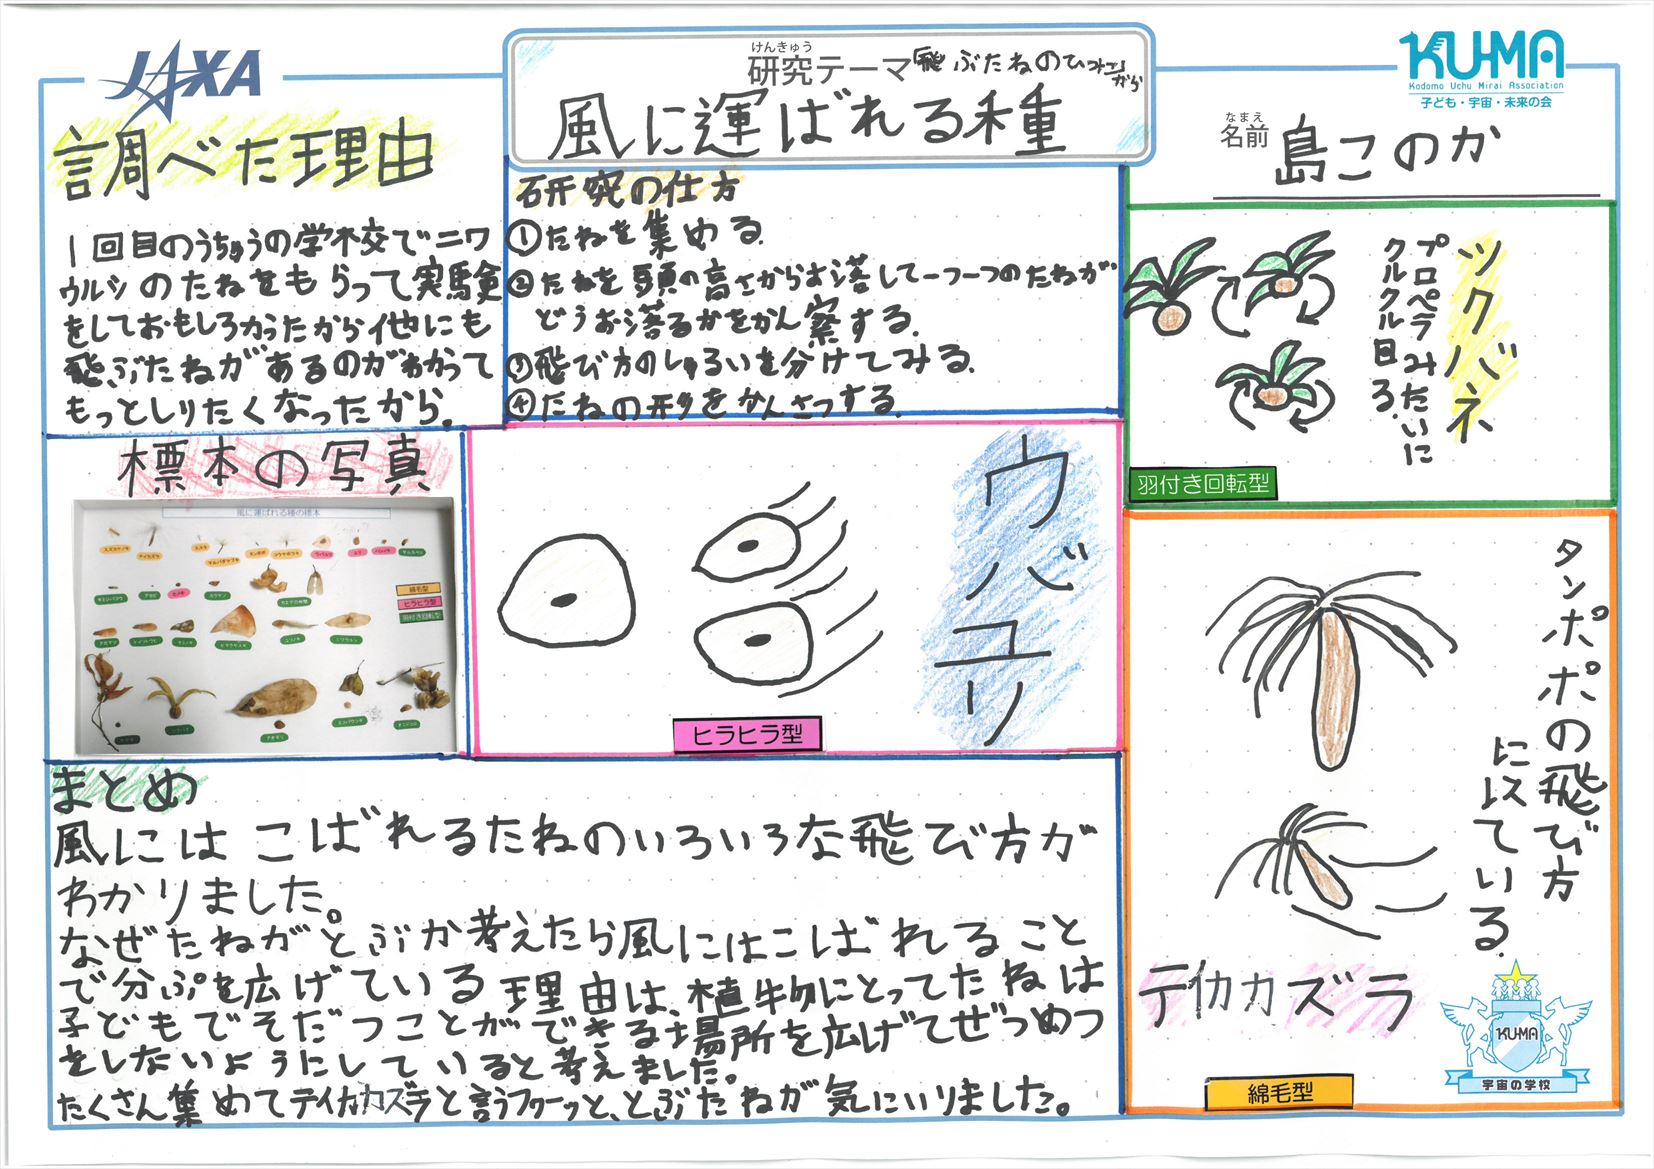 JAXA
けんきゅう
研究テーマ
風に運ばれる種
KU-MA
Kodomo Uchu Mirai Association
子ども・宇宙・未来の会
なまえ
名前 島このか
調べた理由
1回目のうちゅうの学校でニワ
ウルシのたねをもらって実験
をしておもしろかったから他にも
飛ぶたねがあるのがわかって
もっとしりたくなったから。
研究の仕方
①たねを集める。
②たねを頭の高さからお落して一つ一つのたねが
どうお落るかをかん察する。
③飛び方のしゅるいを分けてみる。
④たねの形をかんさつする。
ツクバネ
プロペラみたいに
クルクル回る。
羽付き回転型
標本の写真
風に運ばれる種の標本
綿毛型
ヒラヒラ型
羽付き回転型
ウバユリ
ヒラヒラ型
タンポポの飛び方
に以ている。
テイカカズラ
綿毛型
KU-MA
宇宙の学校
まとめ
風にはこばれるたねのいろいろな飛び方が
わかりました。
なぜたねがとぶか考えたら風にはこばれること
で分ぷを広げている理由は、植物にとってたねは
子どもでそだつことができる場所を広げてぜつめつ
をしないようにしていると考えました。
たくさん集めてテイカカズラと言うフワーッと、とぶたねが気にいりました。